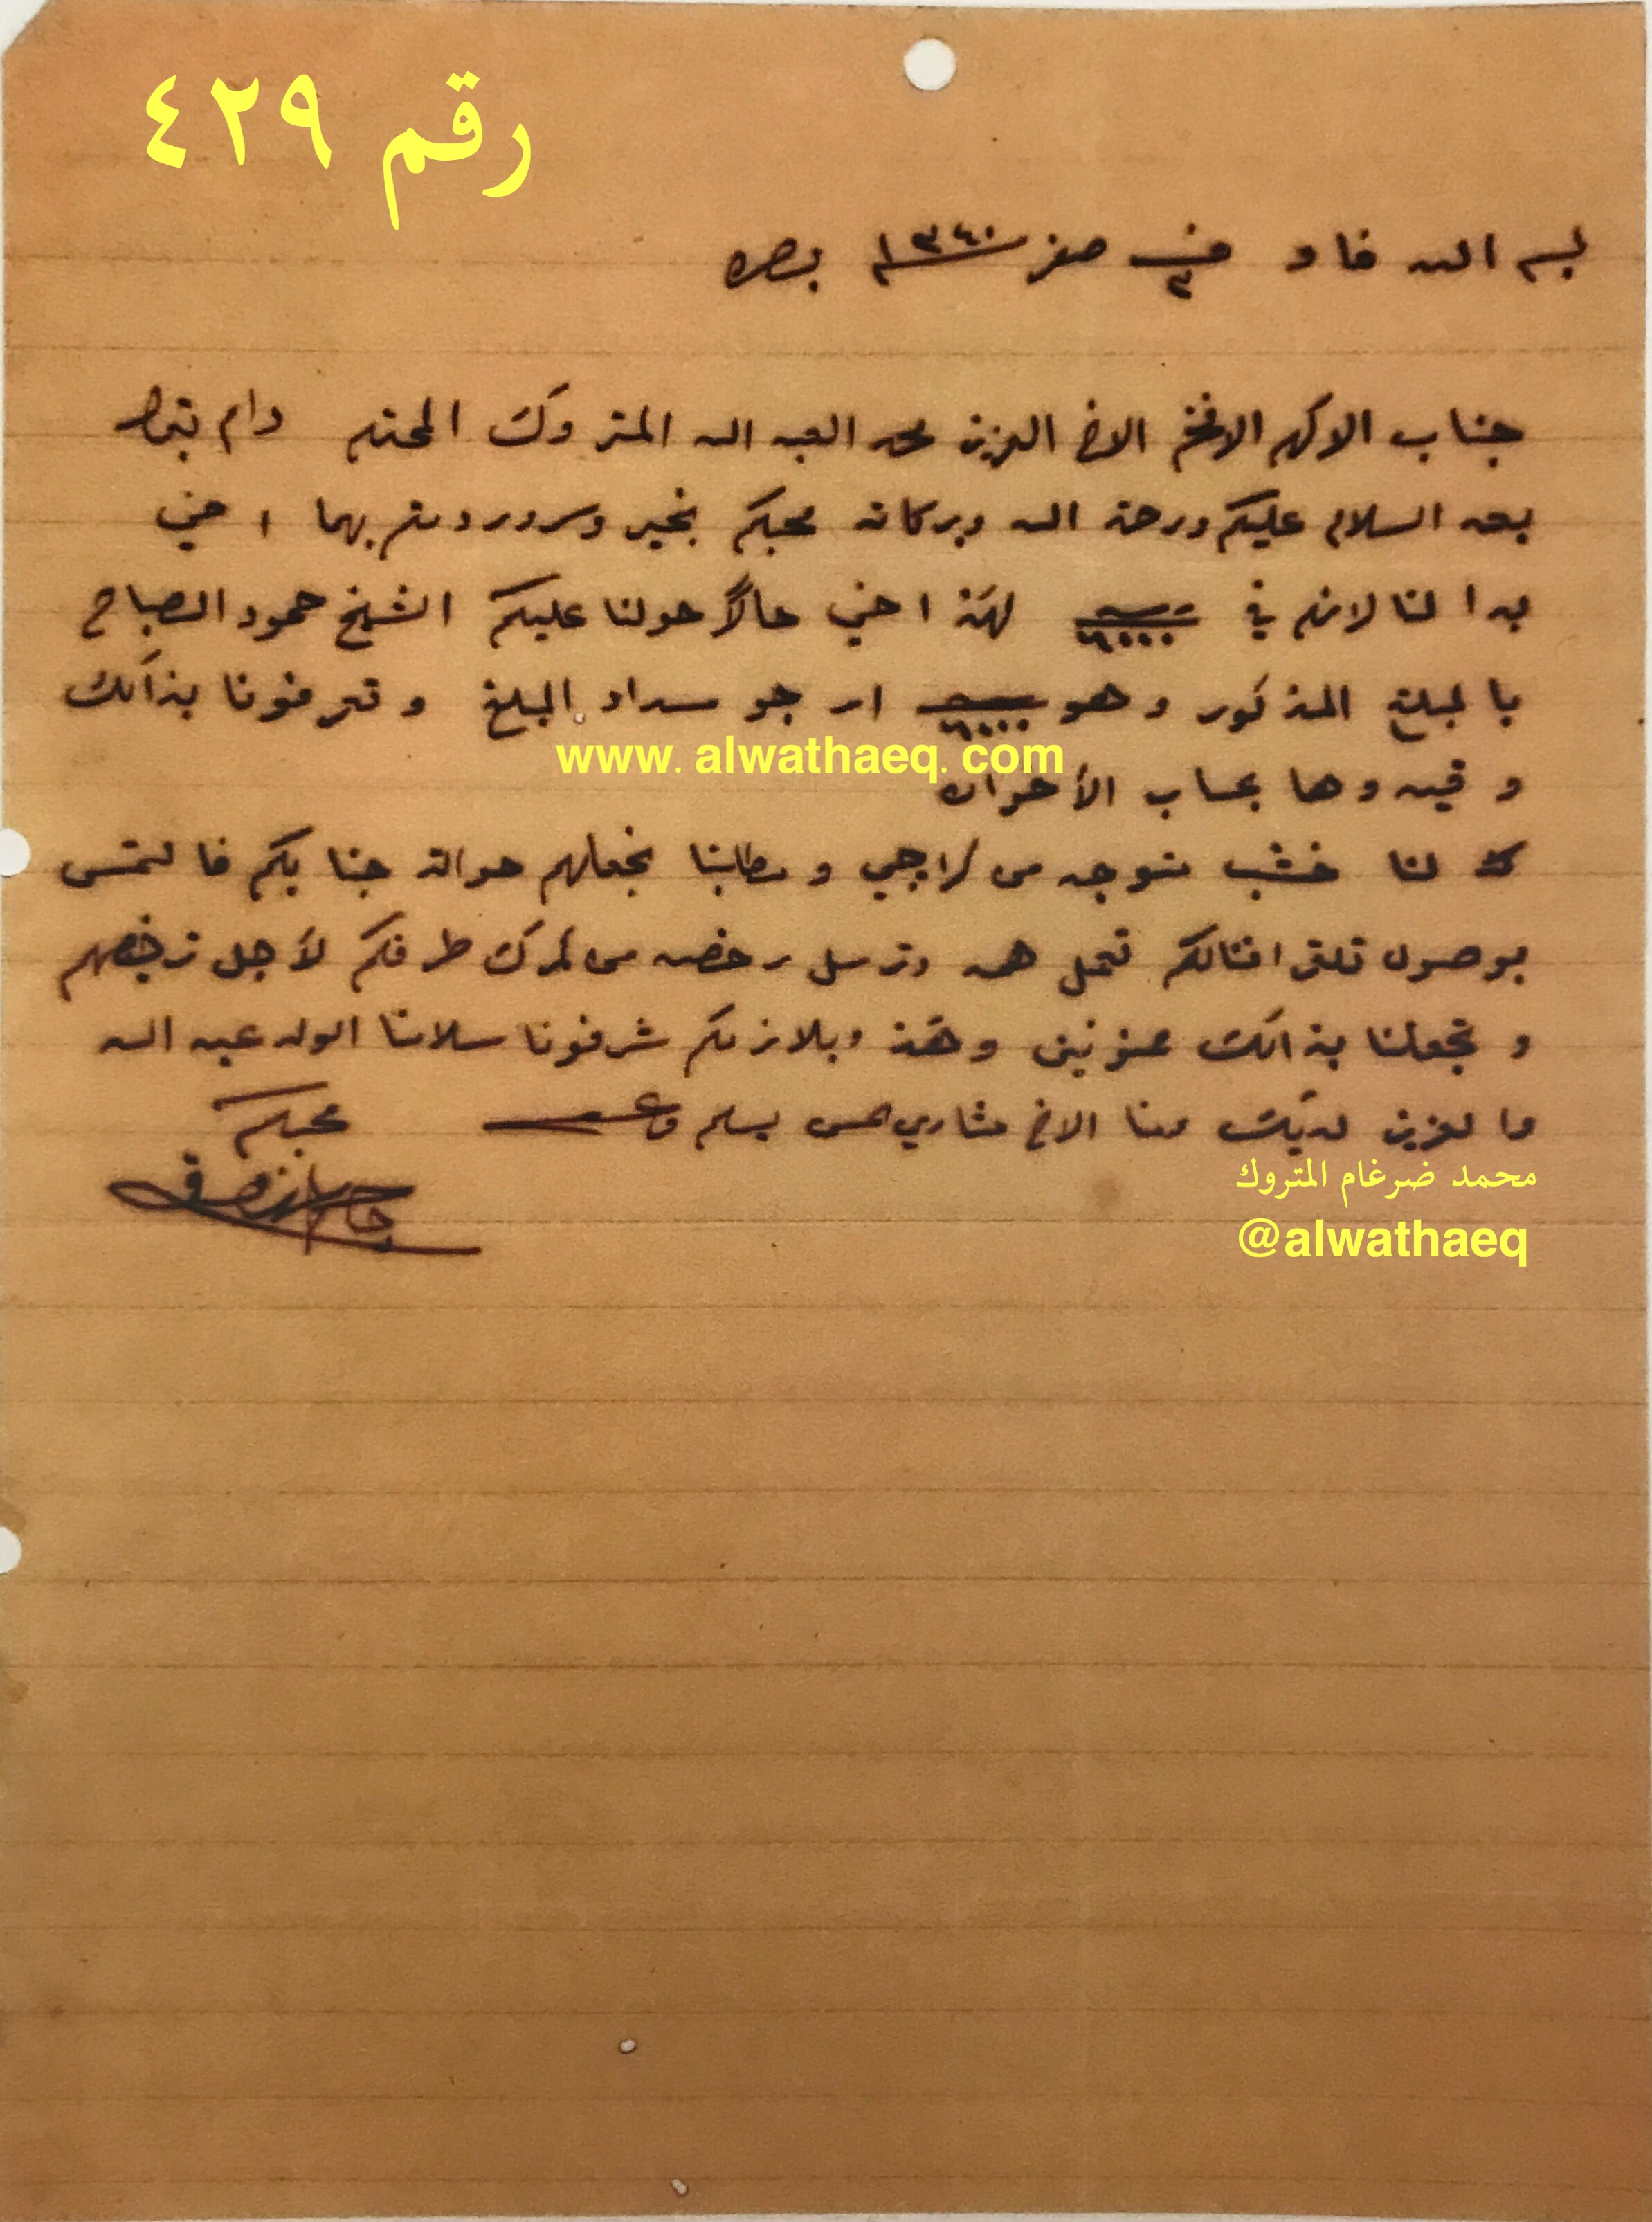 رقم ٤٢٩
بسم الله فاو في ٣ صفر ١٣٤٠ بصره
جناب الاكرم الافخم الاخ العزيز محمد العبد الله المتروك المحترم دام بقاه
بعد السلام عليكم ورحمة الله وبركاته محبكم بخير وسرور دمتم بهما اخي
بدا لنا لازم في ٦٠٠٠ لهذا اخي حالاً حولنا عليكم الشيخ حمود الصباح
بالمبلغ المذكور وهو ٦٠٠٠ ارجو سداد المبلغ وتعرفونا بذالك
www. alwathaeq. com
وقيدوها بحساب الأخوان
لنا خشب متوجه من كراچي و نجعلهم حوالة جنابكم فالتمس
بوصول تلقرافنالكم تعمل همه وترسل رخصه من كمرك طرفكم لأجل ترخيصهم
وتجعلنا بذالك ممنونين وهذا وبلازمكم شرفونا سلامنا الولد عبد الله
ما لعزيز لديك ومنا الاخ مشاري الحسن يسلم
محبكم
محمد ضرغام المتروك
@alwathaeq